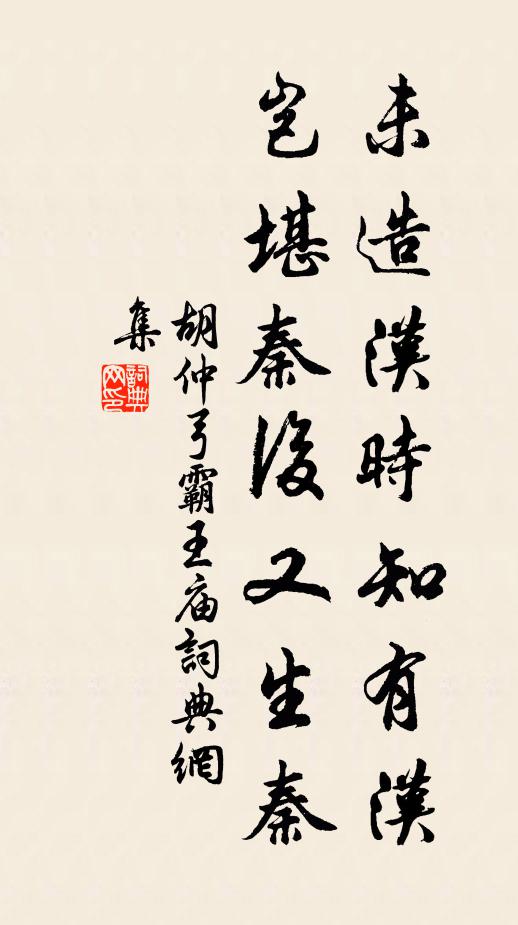 未造漢時知有漢
豈堪秦後又生秦
胡仲弓霸王庙詞典網
集
詞典
网印